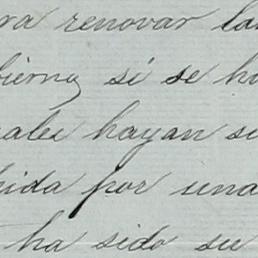 ra renovar la
bierno si se ha
ales hayan si
ida por una
ha sido su